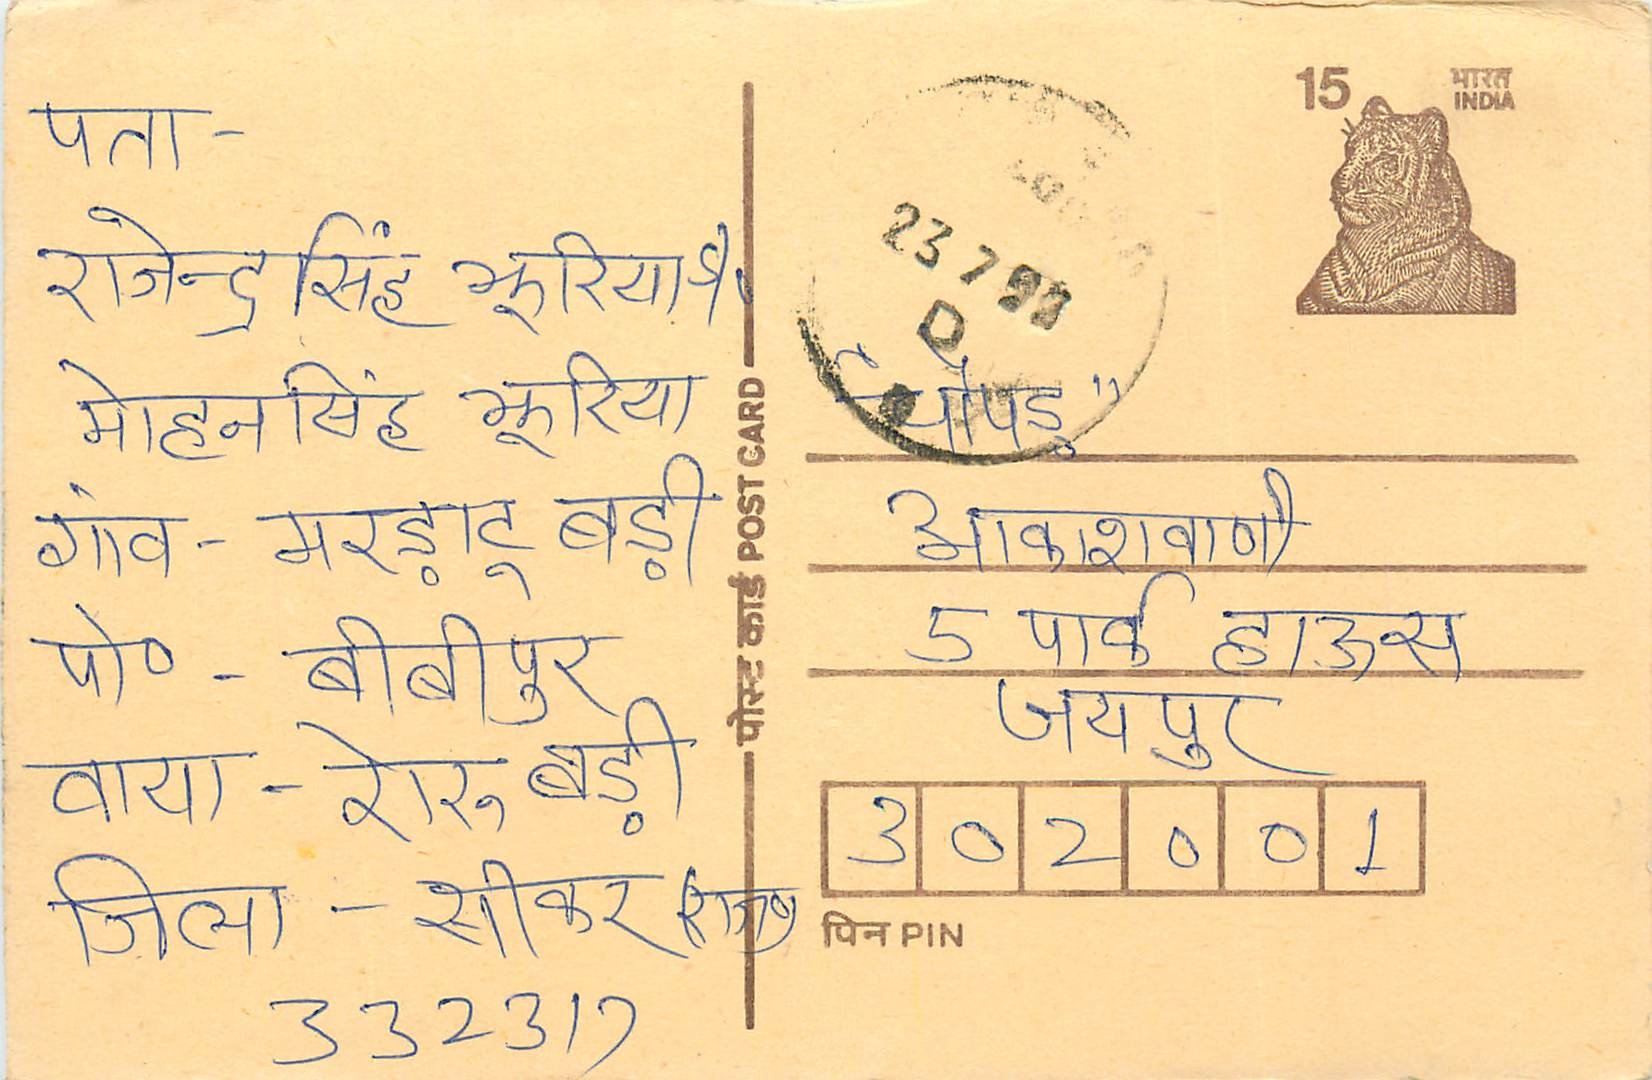 पता-
राजेन्द्र सिंह झूरिया S/o
मोहन सिंह झूरिया
गांव - मरड़ाटू बड़ी
पो० - बीबीपुर
वाया - रोरू बड़ी
जिला - सीकर (राज०)
332317
पोस्ट कार्ड POST CARD
15 भारत
INDIA
23 7 93
D
"चोपड़"
आकाशवाणी
5 पार्क हाऊस
जयपुर
302001
पिन PIN